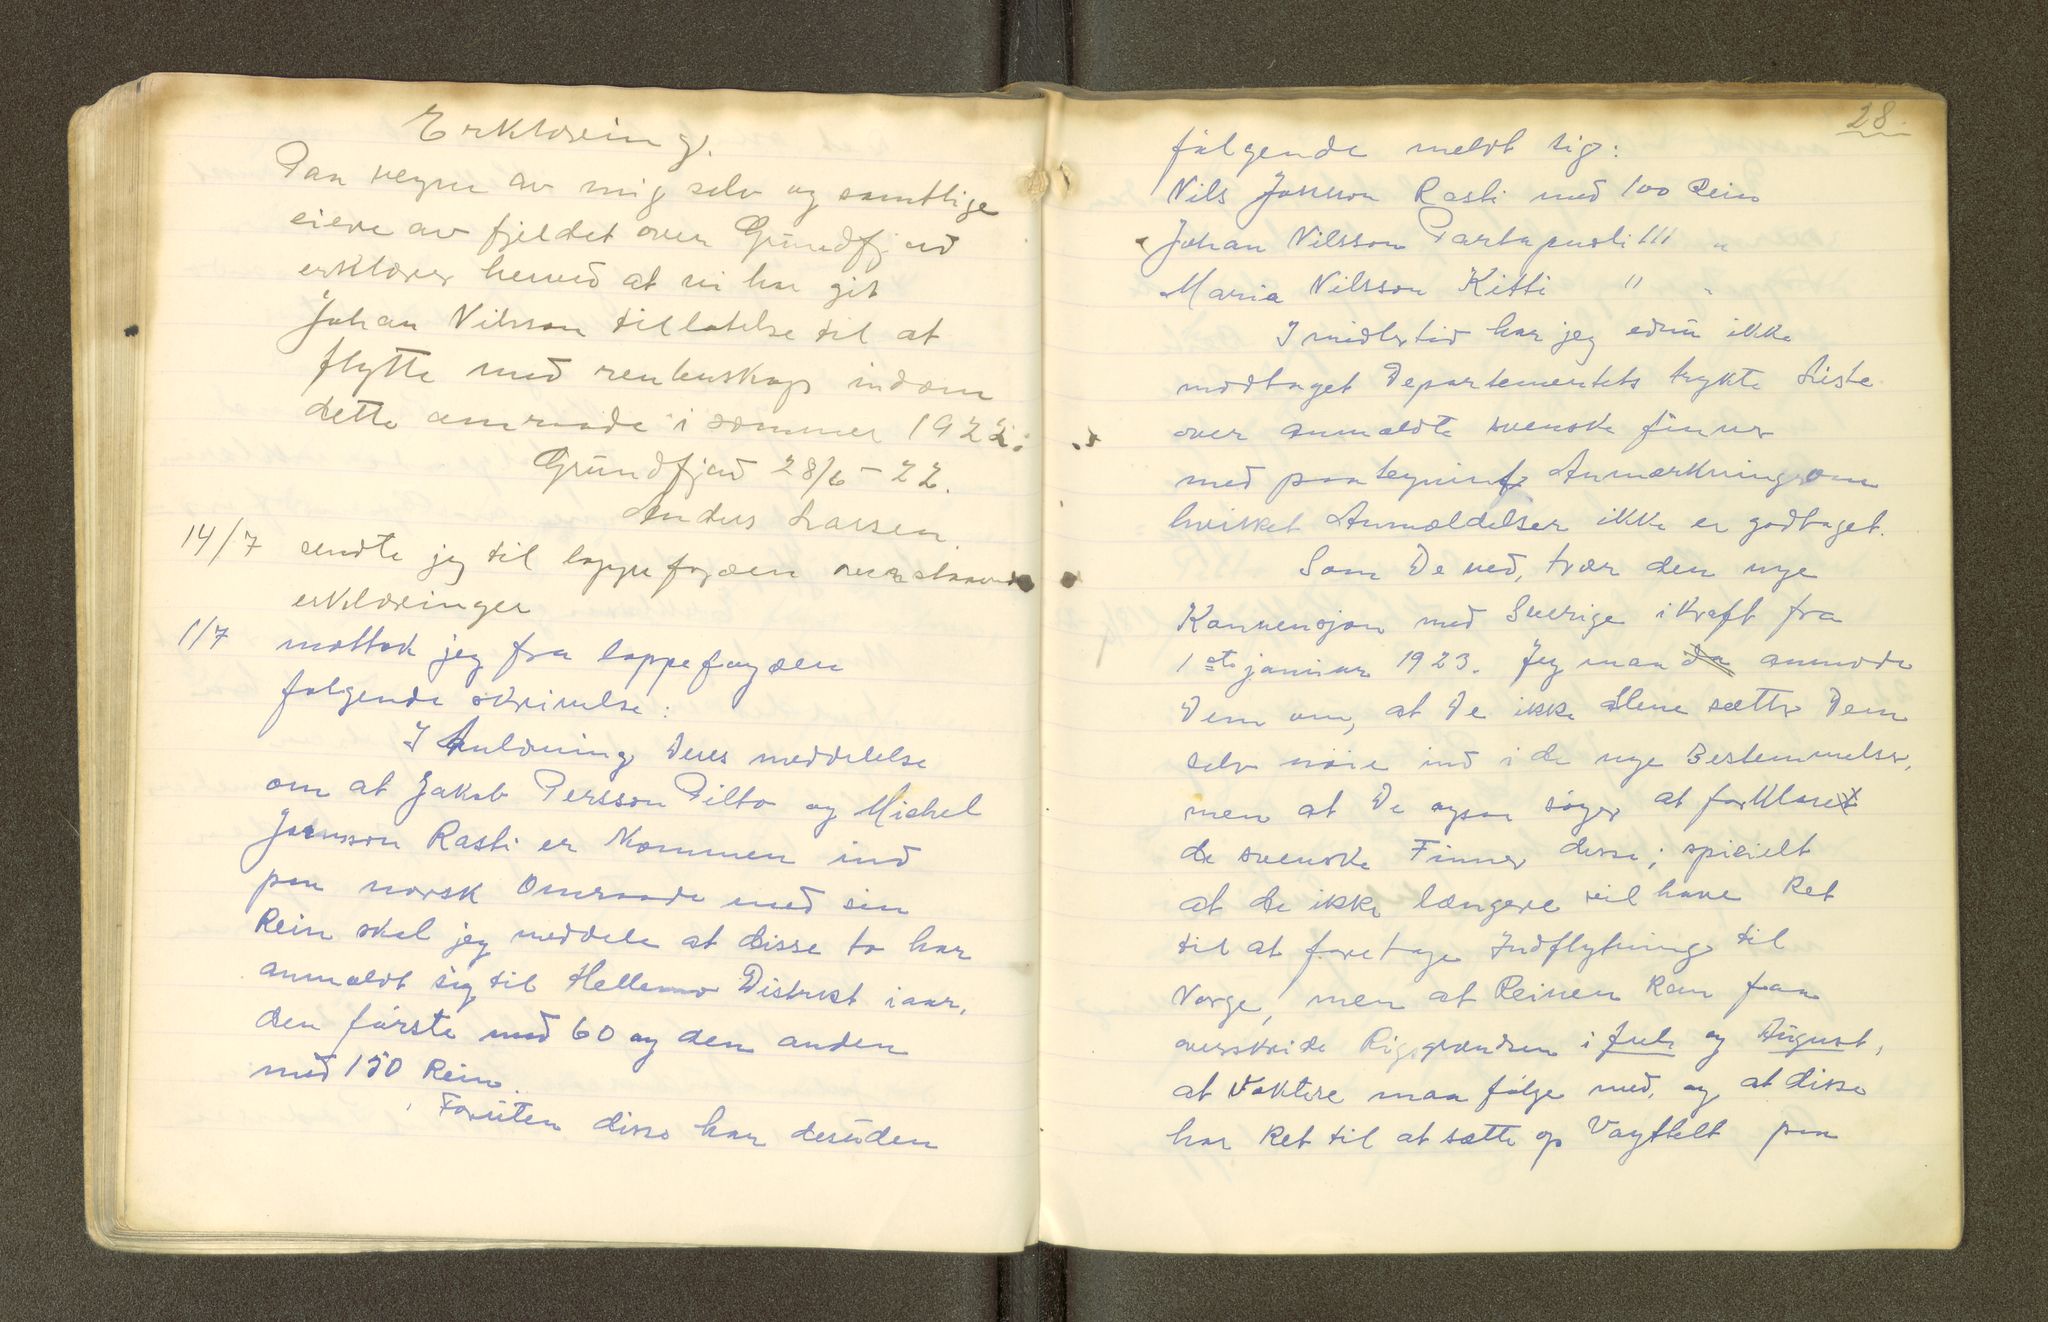 Erklæring.
Paa vegne av mig selv og samtlige
eiere av fjeldet over Grundfjord
erklærer herved at vi har git
Johan Nilsson tillatelse til at
flytte med renbuskap indom
dette omraade i sommer 1922.
Grundfjord 28/6 - 22.
Anders Larsen.
14/7 sendte jeg til lappefogden overstaaende
erklæringer
1/7 mottok jeg fra lappefogden
følgende skrivelse:
I Anledning Deres meddelelse
om at Jakob Persson Pilto og Michel
Jonsson Rasti er kommen ind
paa norsk Omraade med sin
Rein skal jeg meddele at disse to har
anmeldt sig til Hellemo Distrikt iaar,
den første med 60 og den anden
med 150 Rein.
Foruten disse har desuden
28
følgende meldt sig:
Nils Jonsson Rasti med 100 Rein
Johan Nilsson Partapuoli 111 "
Maria Nilsson Kitti " "
Imidlertid har jeg ednu ikke
modtaget Departementets trykte Liste
over anmeldte svenske finner
med paategning Anmærkning om
hvilket Anmældelser ikke er godtaget.
Som De ved, trær den nye
Konvensjon med Sverige ikraft fra
1ste januar 1923. Jeg maa da anmode
Dem om, at De ikke alene sætter Dem
selv nöie ind i de nye Bestemmelser,
men at De ogsaa søger at forklare
de svenske Finner disse; spicielt
at de ikke længere vil have Ret
til at foretage Indflytning til
Norge, men at Reinen kan faa
overskride Rigsgrændsen i Juli og August,
at Voktere maa følge med, og at disse
har Ret til at sætte op Vagttelt paa